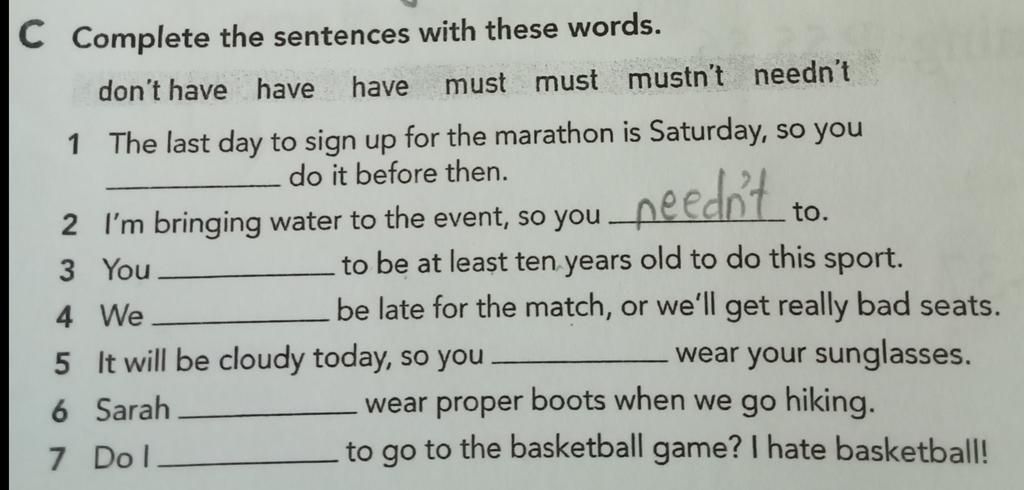 C Complete the sentences with these words.
don't have have have must must mustn't needn't
1 The last day to sign up for the marathon is Saturday, so you
____________ do it before then.
2 I'm bringing water to the event, so you needn't to.
3 You ____________ to be at least ten years old to do this sport.
4 We ____________ be late for the match, or we'll get really bad seats.
5 It will be cloudy today, so you ____________ wear your sunglasses.
6 Sarah ____________ wear proper boots when we go hiking.
7 Do I ____________ to go to the basketball game? I hate basketball!